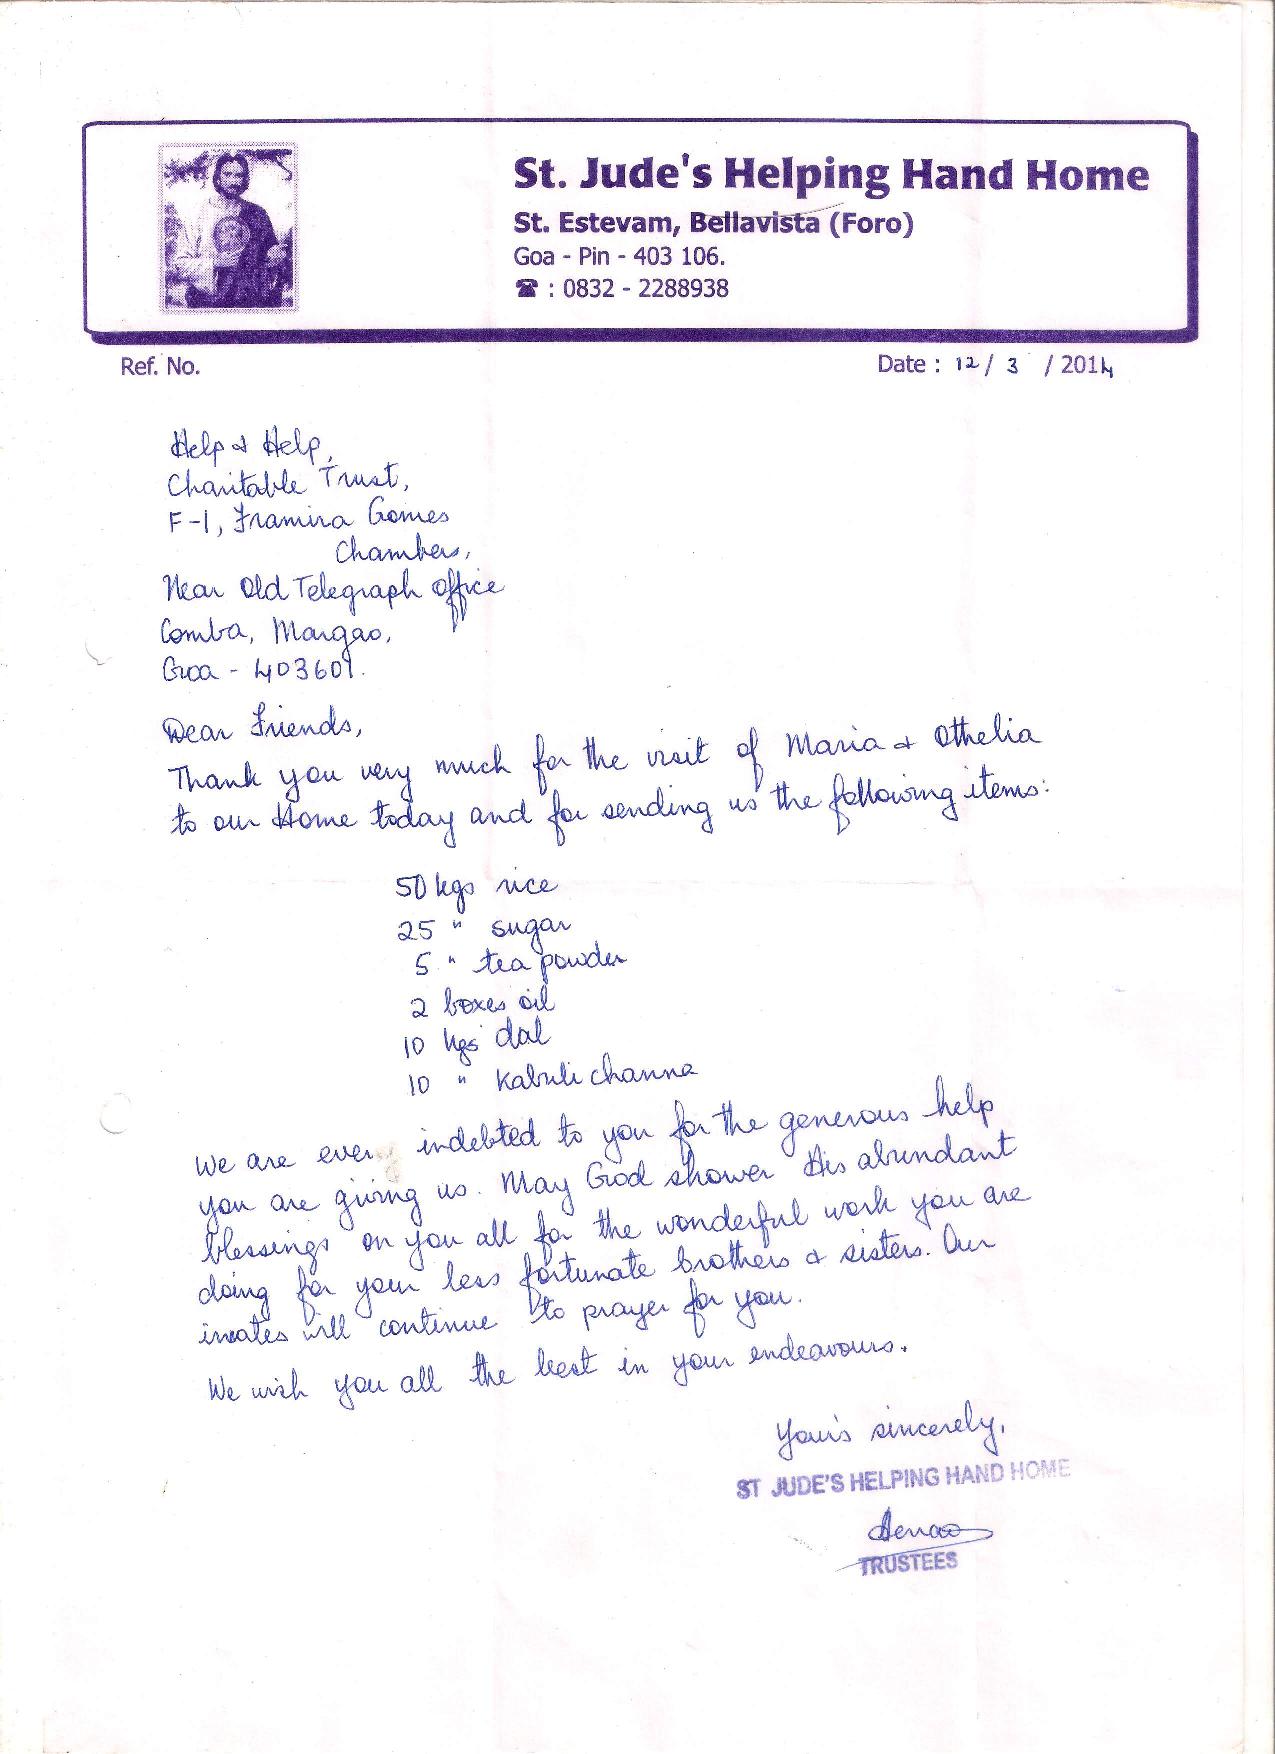 St. Jude's Helping Hand Home
St. Estevam, Bellavista (Foro)
Goa - Pin - 403 106.
☎ : 0832 - 2288938
Ref. No.
Date : 12 / 3 / 2014
Help & Help,
Charitable Trust,
F-1, Framira Gomes
Chambers,
Near Old Telegraph Office
Comba, Margao,
Goa - 403601.
Dear Friends,
Thank you very much for the visit of Maria & Othelia
to our Home today and for sending us the following items:
50 kgs rice
25 " sugar
5 " tea powder
2 boxes oil
10 kgs dal
10 " Kabuli channa
We are ever indebted to you for the generous help
you are giving us. May God shower His abundant
blessings on you all for the wonderful work you are
doing for your less fortunate brothers & sisters. Our
inmates will continue to prayer for you.
We wish you all the best in your endeavours.
Your's sincerely,
ST JUDE'S HELPING HAND HOME
TRUSTEES